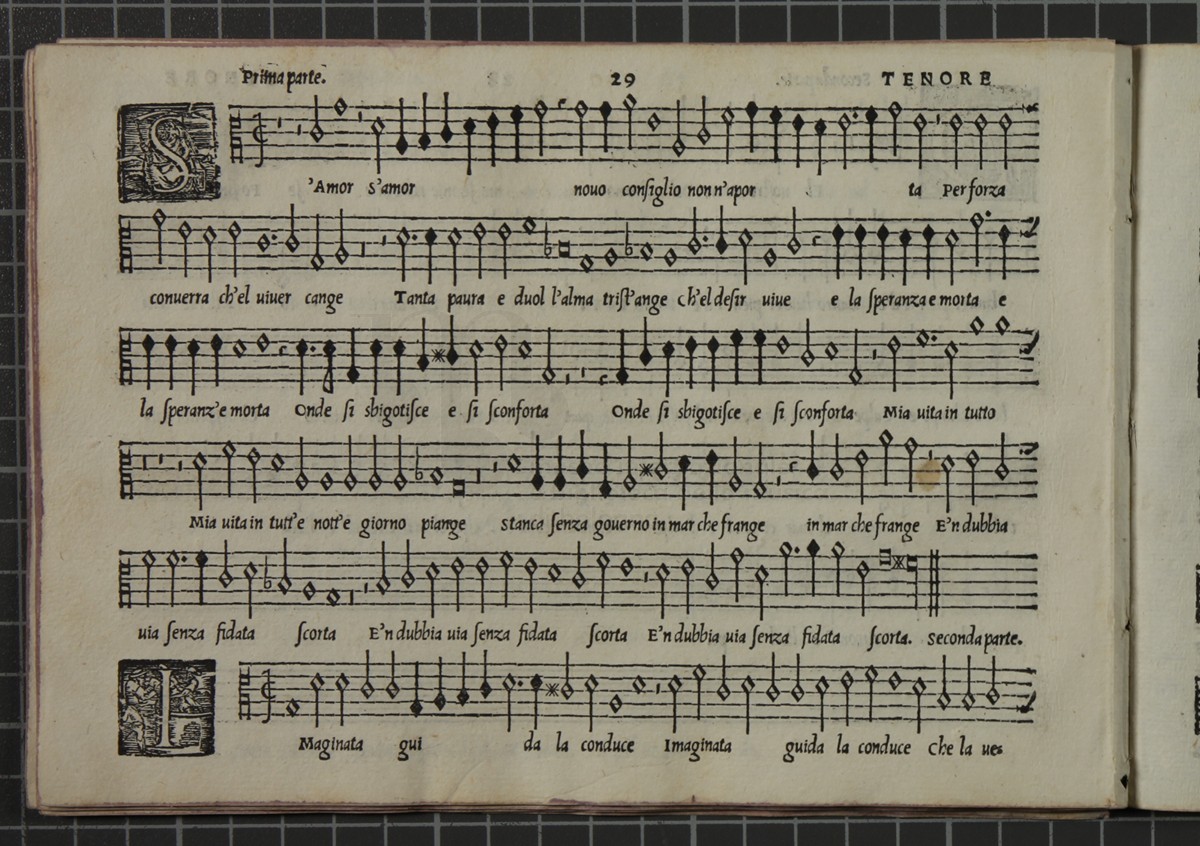 Prima parte. 29 TENORE
S
'Amor s'amor nouo consiglio non n'apor ta Per forza
conuerra ch'el uiuer cange Tanta paura e duol l'alma trist'ange ch'el desir uiue e la speranza e morta e
la speranz'e morta Onde si sbigotisce e si sconforta Onde si sbigotisce e si sconforta Mia uita in tutto
Mia uita in tutt'e nott'e giorno piange Stanca senza gouerno in mar che frange in mar che frange E'n dubbia
uia senza fidata scorta E'n dubbia uia senza fidata scorta E'n dubbia uia senza fidata scorta. Seconda parte.
I
Maginata gui da la conduce Imaginata guida la conduce Che la ue